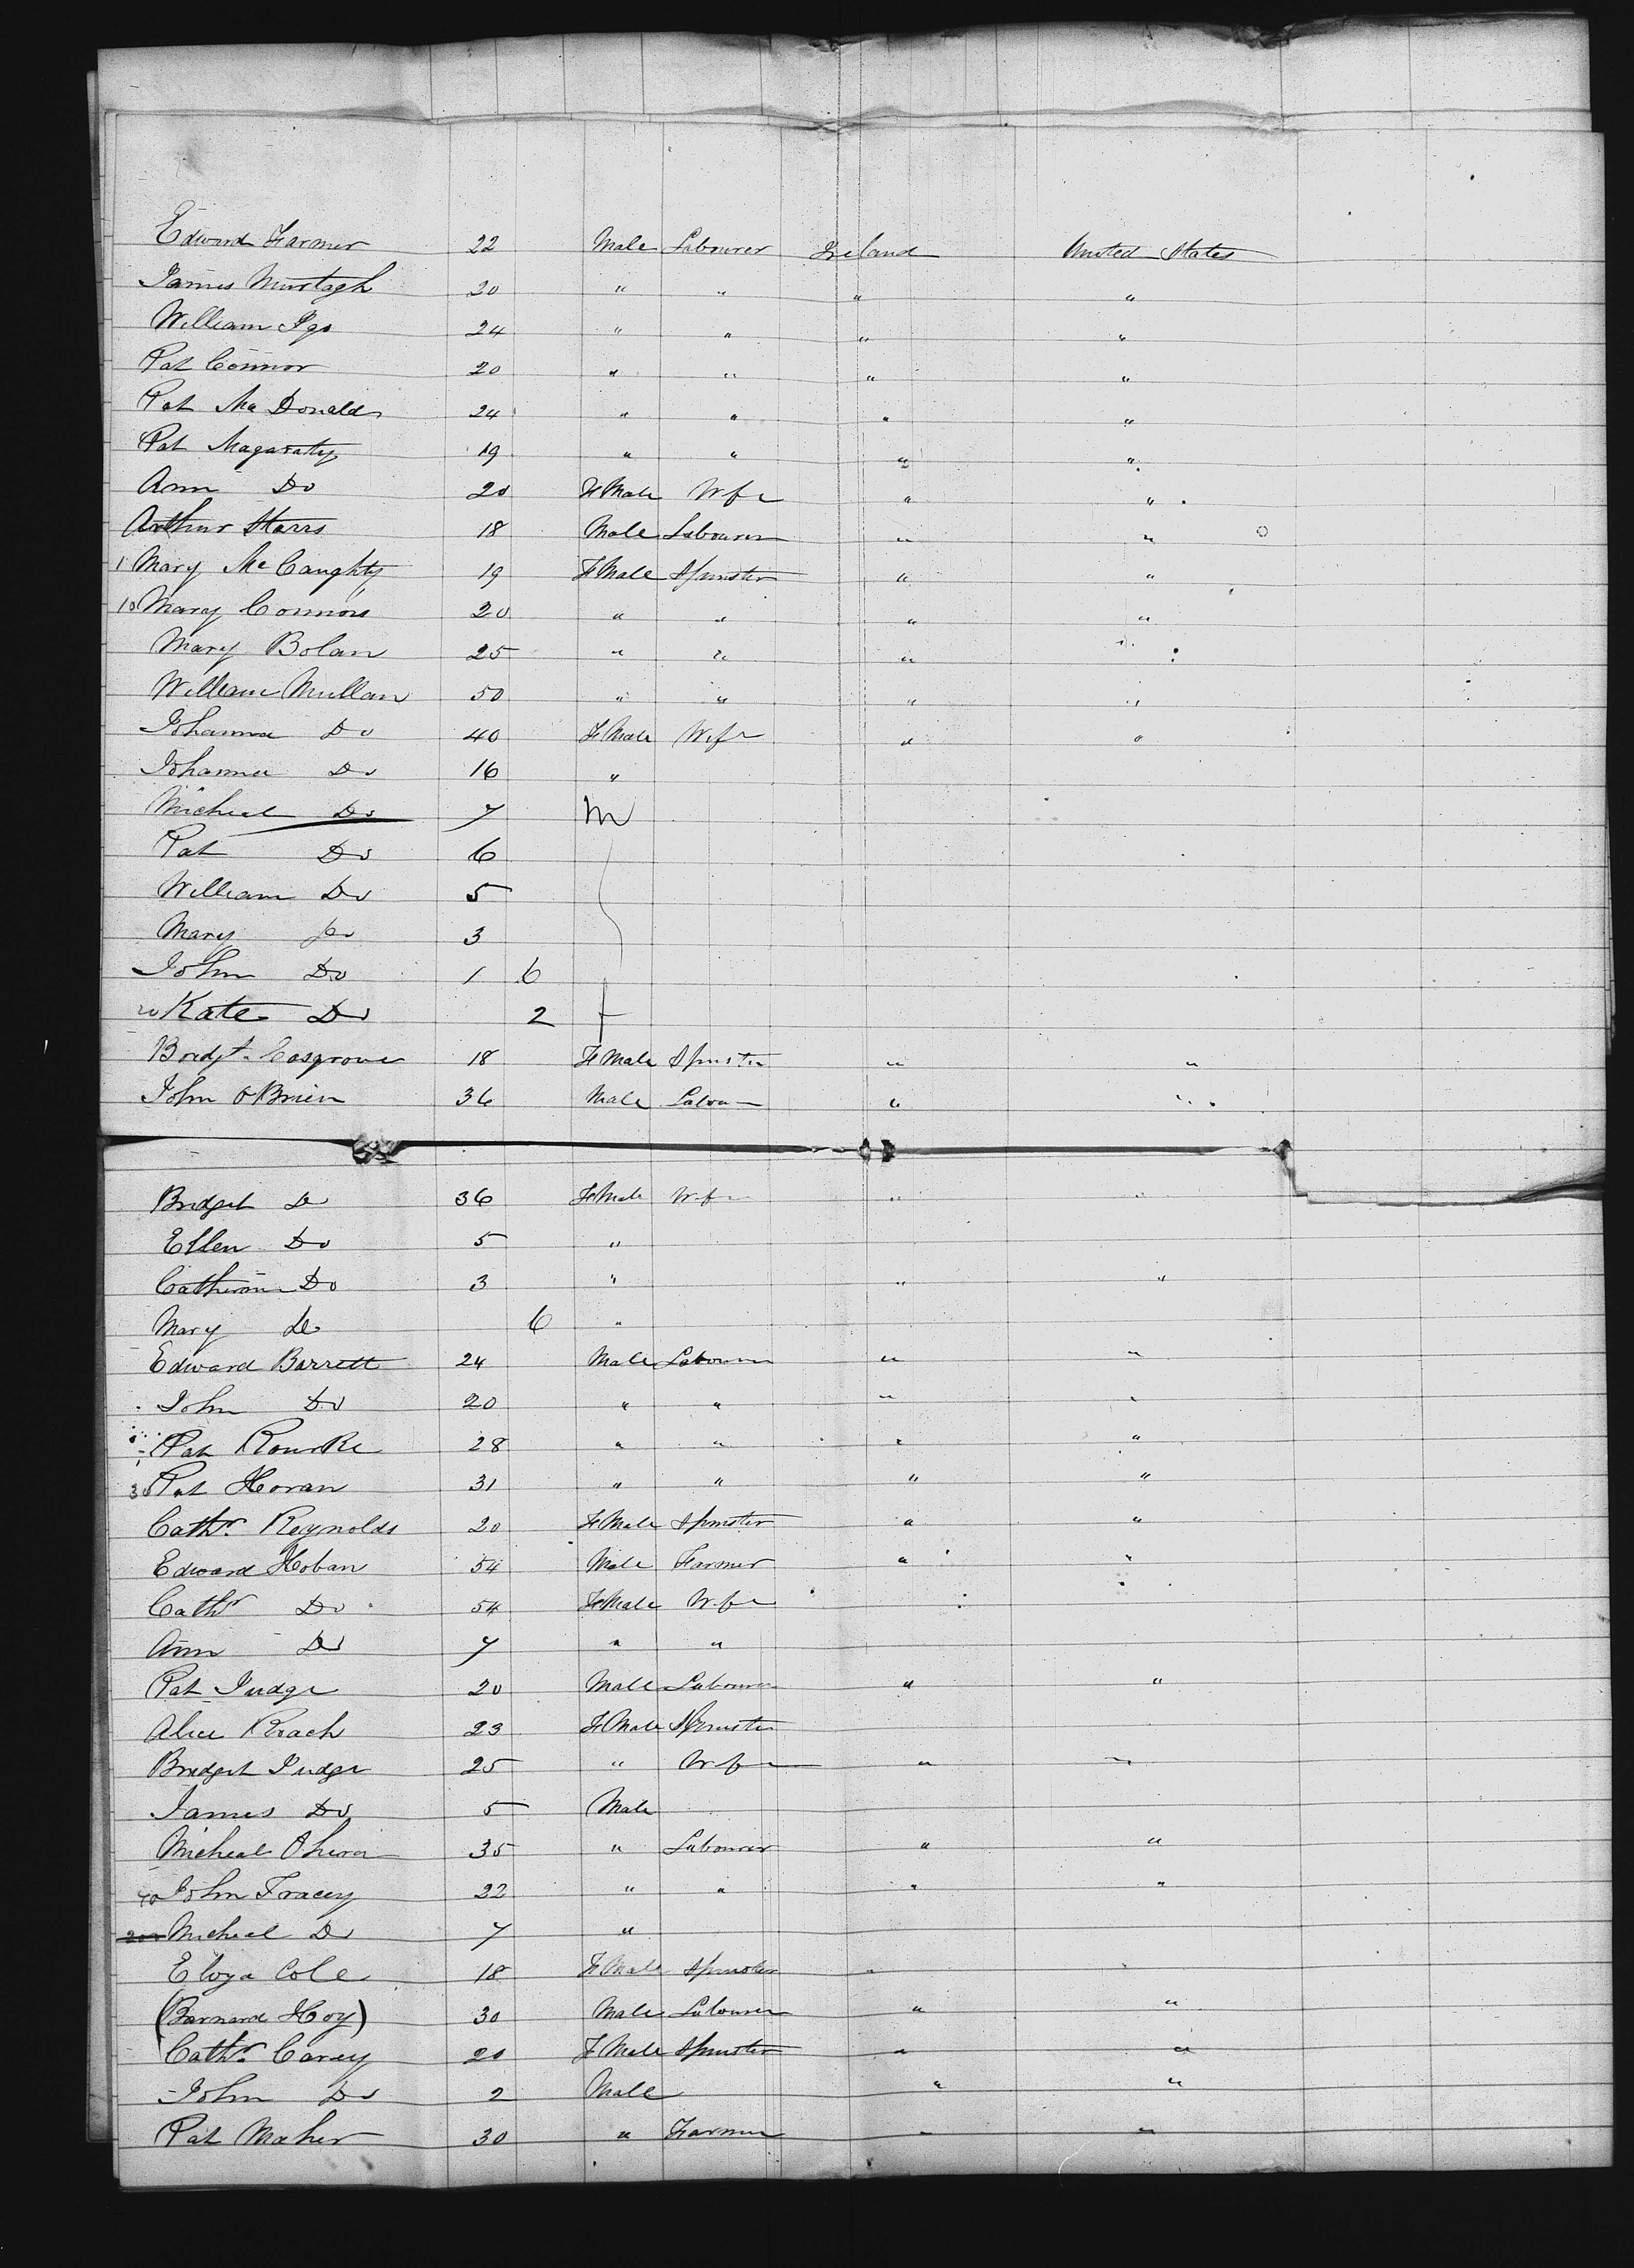 Edward Farmer 22 Male Labourer Ireland United States
James Murtagh 20 " " " "
William Igo 24 " " " "
Pat Connor 20 " " " "
Pat McDonald 24 " " " "
Pat Magaratty 19 " " " "
Ann Do 20 FeMale Wife " "
Arthur Starrs 18 Male Labourer " "
1 Mary McCaughty 19 FeMale Spinster " "
10 Mary Connors 20 " " " "
Mary Bolan 25 " " " "
William Mullan 50 " " " "
Johanna Do 40 FeMale Wife " "
Johanna Do 16 "
Micheal Do 7 M
Pat Do 6
William Do 5
Mary Do 3
John Do 1 6
20 Kate Do 2 f
Bridgt. Cosgrove 18 FeMale Spinster " "
John OBrien 36 Male Labou " "
Bridget Do 36 FeMale Wife " "
Ellen Do 5 "
Catherine Do 3 " " "
Mary Do 6 "
Edward Barrett 24 Male Labourer " "
John Do 20 " " " "
Pat Rourke 28 " " " "
30 Pat Horan 31 " " " "
Cathr. Reynolds 20 FeMale Spinster " "
Edward Hoban 54 Male Farmer " "
Cathr Do 54 FeMale Wife
Ann Do 7 " "
Pat Judge 20 Male Labourer " "
Alice Roach 23 FeMale Spinster
Bridget Judge 25 " Wife " "
James Do 5 Male
Micheal 35 " Labourer " "
40 John Tracey 22 " " " "
Micheal Do 7 "
Cole 18 FeMale Spinster " "
(Barnard Hoy) 30 Male Labourer " "
Cathr. Carey 20 FeMale Spinster " "
John Do 2 Male " "
Pat Maher 30 " Farmer " "